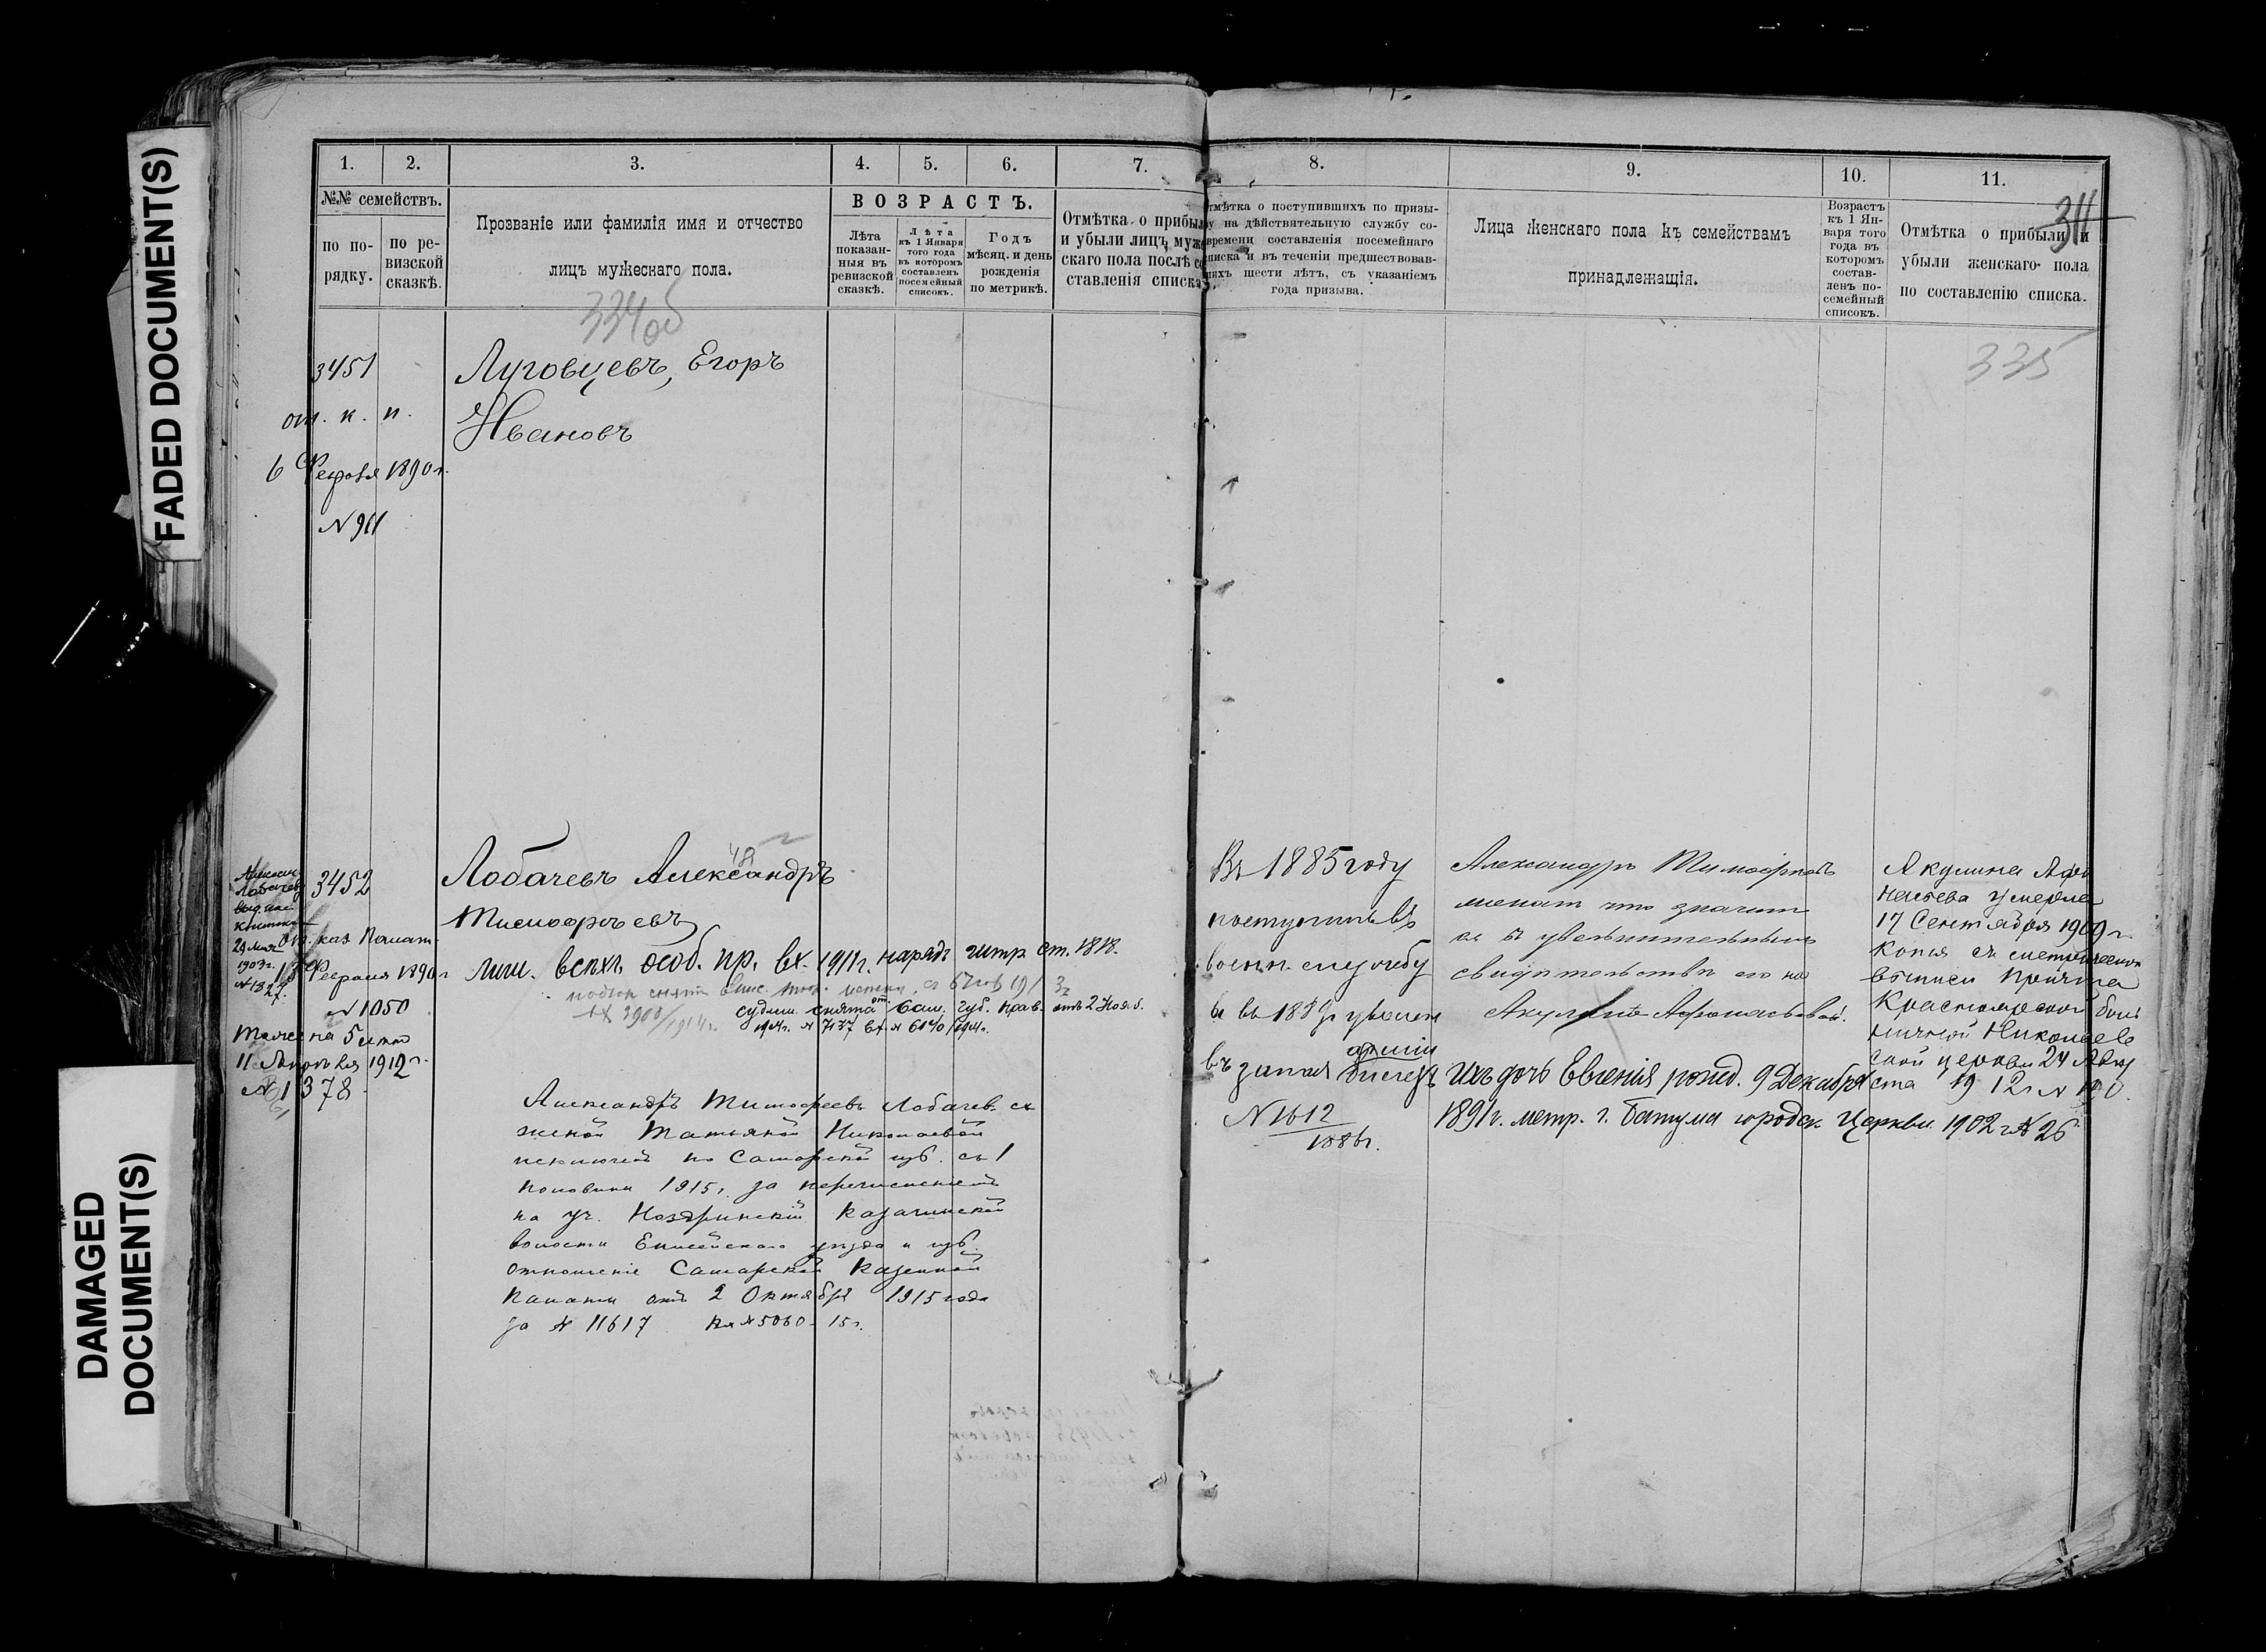 FADED DOCUMENT(S)
DAMAGED
DOCUMENT(S)
1.
2.
3.
4.
5.
6.
7.
8.
9.
10.
11.
311
№№ семействъ.
по по-
рядку.
по ре-
визской
сказкѣ.
Прозваніе или фамилія имя и отчество
лицъ мужескаго пола.
ВОЗРАСТЪ.
Лѣта
показан-
ныя въ
ревизской
сказкѣ.
Лѣта
къ 1 Января
того года
въ которомъ
составленъ
посемейный
списокъ.
Годъ
мѣсяц. и день
рожденія
по метрикѣ.
Отмѣтка о прибыл
и убыли лицъ муже
скаго пола послѣ со
ставленія списка
тмѣтка о поступившихъ по призы-
ву на дѣйствительную службу со-
времени составленія посемейнаго
списка и въ теченіи предшествовав-
шихъ шести лѣтъ, съ указаніемъ
года призыва.
Лица женскаго пола къ семействамъ
принадлежащія.
Возрастъ
къ 1 Ян-
варя того
года въ
которомъ
состав-
ленъ по-
семейный
списокъ.
Отмѣтка о прибыли и
убыли женскаго пола
по составленію списка.
334об
335
3451
Луговцевъ, Егоръ
от. к. п.
Ивановъ
6 Февраля 1890 г.
N 961
3452
Лобачевъ Александръ
Тимофѣевъ
Лобачев
книжка
29 мая
1903 г.
N 1327.
от. каз. Палат.
13 Февраля 1890 г
N 1050
Тоже на 5 лѣт
1912 г.
N 1378
лиш. всѣхъ особ. пр. вх. 1911 г. нарядъ ст. 1818.
судим. снята от. губ. прав. отъ 2 Нояб.
1914 г. N 7137 вх. N 6140/1914 г.
Александръ Тимофеевъ Лобачев съ
женой Татьяной Николаевой
исключен по Самарской губ. съ 1
половины 1915 г. за перечисленіемъ
на уч. Казачинской
волости Енисейскаго уѣзда и губ.
отношеніе Самарской Казенной
Палаты отъ 2 Октября 1915 года
за N 11617 вх N 5060 - 15 г.
Въ 1885 году
поступилъ въ
воен. службу
уволен
въ запас арміи
N 1612
1886 г.
Александръ Тимофѣевъ
женат что значит
ся въ увольнительномъ
свидѣтельствѣ его на
Акулинѣ Афонасьевой.
Ихъ дочь Евгенія рожд. 9 Декабря
1891 г. метр. г. Батума городск. Церкви 1902 г. N 26
Акулина Афо
насьева умерла
17 Сентября 1909 г.
Копія съ метрической
выписи Причта
Красноярской боль
ничной Николаев
ской церкви 24 Авгу
ста 1912 г. N 190.